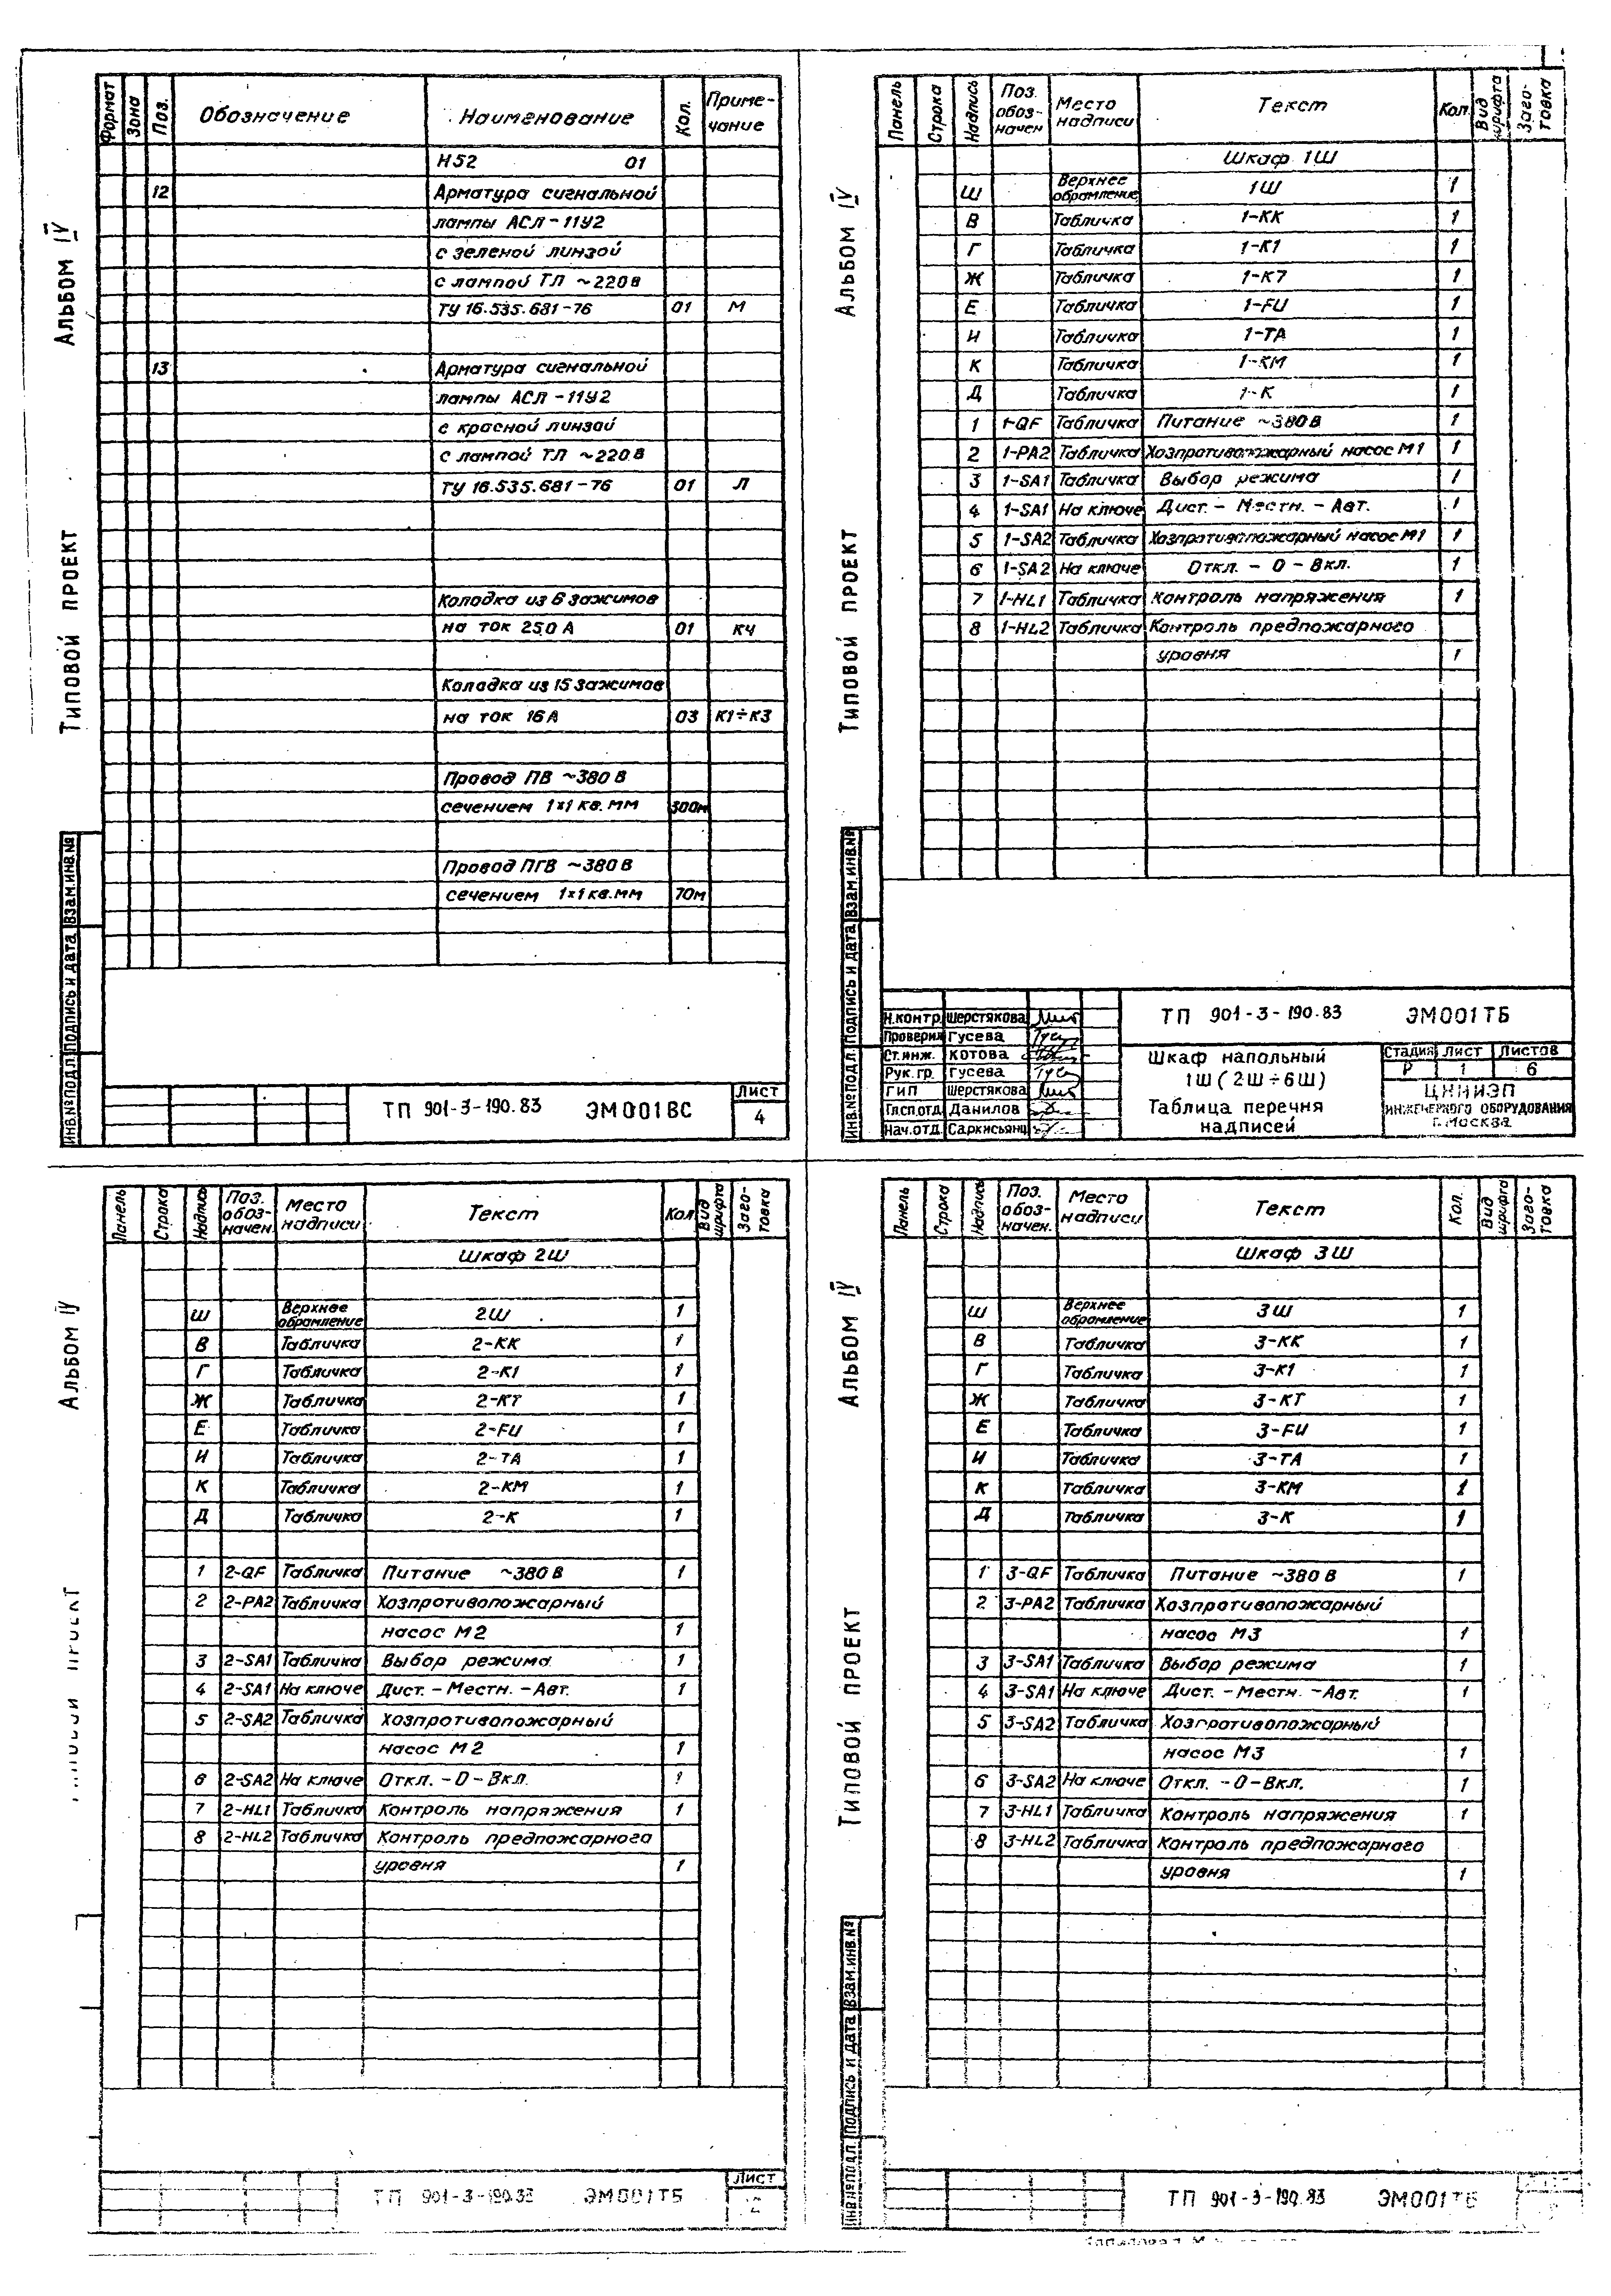 Альбом IV
Типовой проект
Формат Зона Поз. Обозначение Наименование Кол. Приме-
чание
Н52 01
12 Арматура сигнальной
лампы АСЛ-11У2
с зеленой линзой
с лампой ТЛ ~220В
ТУ 16.535.681-76 01 М
13 Арматура сигнальной
лампы АСЛ-11У2
с красной линзой
с лампой ТЛ ~220В
ТУ 16.535.681-76 01 Л
Колодка из 6 зажимов
на ток 250А 01 КЧ
Колодка из 15 зажимов
на ток 16А 03 К1÷К3
Провод ПВ ~380В
сечением 1х1 кв.мм 300м
Провод ПГВ ~380В
сечением 1х1 кв.мм 70м
Инв.№подл. Подпись и дата Взам.инв.№
ТП 901-3-190.83 ЭМ001ВС
Лист
4
Альбом IV
Типовой проект
Панель Строка Надпись Поз. обоз-
начен Место
надписи Текст Кол. Вид
шрифта Заго-
товка
Шкаф 1Ш
Ш Верхнее
обрамление 1Ш 1
В Табличка 1-КК 1
Г Табличка 1-К1 1
Ж Табличка 1-К7 1
Е Табличка 1-FU 1
И Табличка 1-ТА 1
К Табличка 1-КМ 1
Д Табличка 1-К 1
1 1-QF Табличка Питание ~380В 1
2 1-РА2 Табличка Хозпротивопожарный насос М1 1
3 1-SA1 Табличка Выбор режима 1
4 1-SA1 На ключе Дист. - Местн. - Авт. 1
5 1-SA2 Табличка Хозпротивопожарный насос М1 1
6 1-SA2 На ключе Откл. - О - Вкл. 1
7 1-HL1 Табличка Контроль напряжения 1
8 1-HL2 Табличка Контроль предпожарного
уровня 1
Инв.№подл. Подпись и дата Взам.инв.№
Н.контр. Шерстякова
Проверил Гусева
Ст.инж. Котова
Рук.гр. Гусева
ГИП Шерстякова
Гл.сп.отд. Данилов
Нач.отд. Саркисьянц
ТП 901-3-190.83 ЭМ001ТБ
Шкаф напольный
1Ш (2Ш÷6Ш)
Таблица перечня
надписей
Стадия Лист Листов
Р 1 6
ЦНИИЭП
инженерного оборудования
г.Москва
Альбом IV
Типовой проект
Панель Строка Надпись Поз.
обоз-
начен. Место
надписи Текст Кол. Вид
шрифта Заго-
товка
Шкаф 2Ш
Ш Верхнее
обрамление 2Ш 1
В Табличка 2-КК 1
Г Табличка 2-К1 1
Ж Табличка 2-КТ 1
Е Табличка 2-FU 1
И Табличка 2-ТА 1
К Табличка 2-КМ 1
Д Табличка 2-К 1
1 2-QF Табличка Питание ~380В 1
2 2-РА2 Табличка Хозпротивопожарный
насос М2 1
3 2-SA1 Табличка Выбор режима 1
4 2-SA1 На ключе Дист. - Местн. - Авт. 1
5 2-SA2 Табличка Хозпротивопожарный
насос М2 1
6 2-SA2 На ключе Откл. - О - Вкл. 1
7 2-HL1 Табличка Контроль напряжения 1
8 2-HL2 Табличка Контроль предпожарного
уровня 1
ТП 901-3-190.83 ЭМ001ТБ
Лист
2
Альбом IV
Типовой проект
Панель Строка Надпись Поз.
обоз-
начен. Место
надписи Текст Кол. Вид
шрифта Заго-
товка
Шкаф 3Ш
Ш Верхнее
обрамление 3Ш 1
В Табличка 3-КК 1
Г Табличка 3-К1 1
Ж Табличка 3-КТ 1
Е Табличка 3-FU 1
И Табличка 3-ТА 1
К Табличка 3-КМ 1
Д Табличка 3-К 1
1 3-QF Табличка Питание ~380В 1
2 3-РА2 Табличка Хозпротивопожарный
насос М3 1
3 3-SA1 Табличка Выбор режима 1
4 3-SA1 На ключе Дист. - Местн. - Авт. 1
5 3-SA2 Табличка Хозпротивопожарный
насос М3 1
6 3-SA2 На ключе Откл. - О - Вкл. 1
7 3-HL1 Табличка Контроль напряжения 1
8 3-HL2 Табличка Контроль предпожарного
уровня 1
Инв.№подл. Подпись и дата Взам.инв.№
ТП 901-3-190.83 ЭМ001ТБ